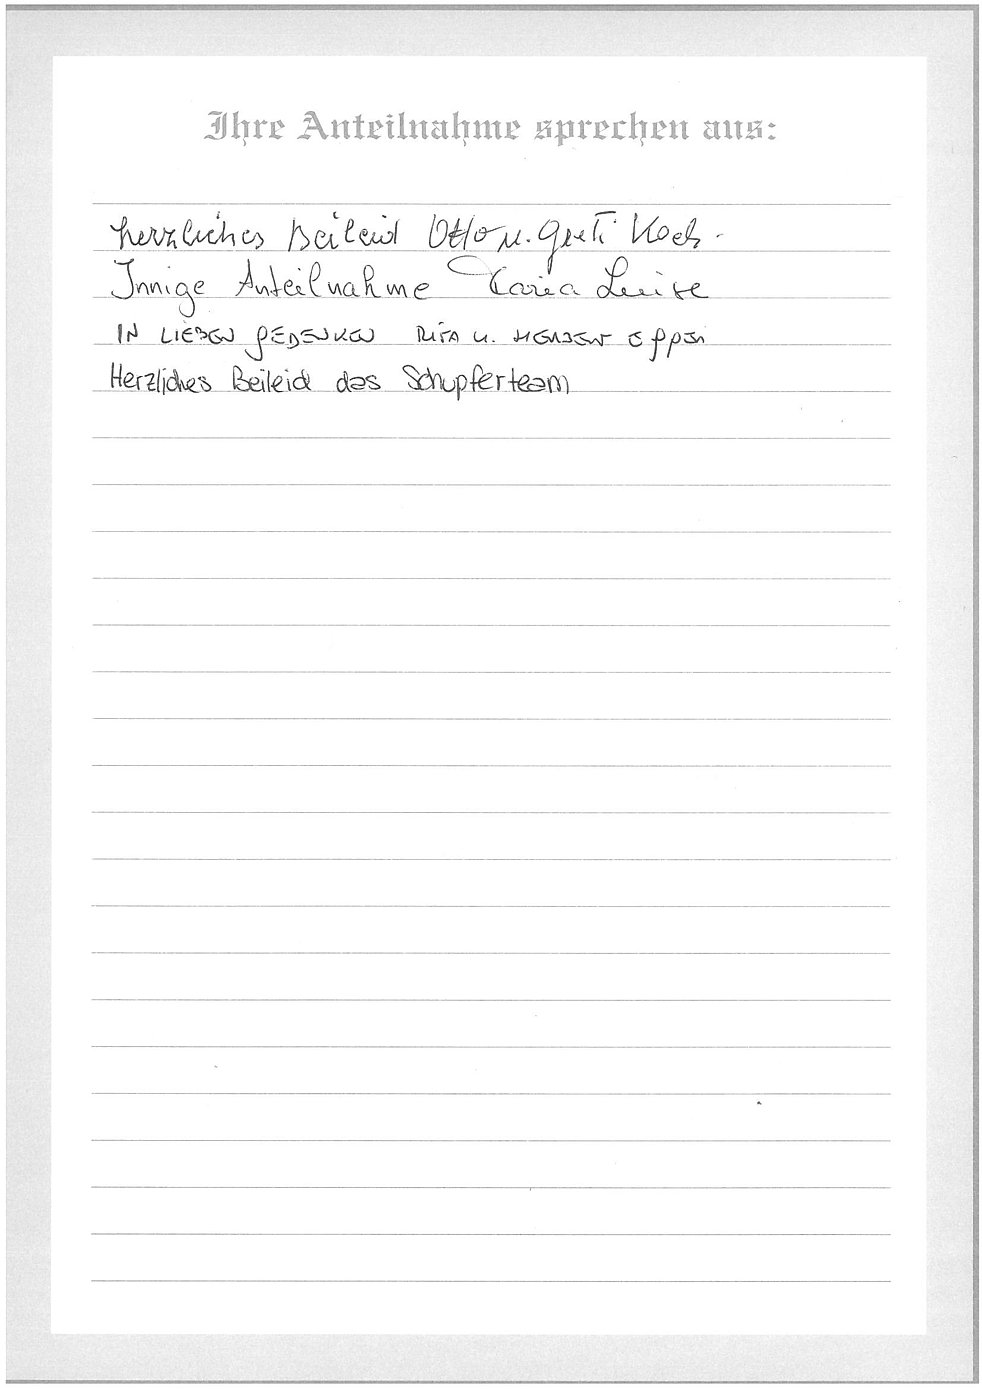 Ihre Anteilnahme sprechen aus:
herzliches Beileid Otto u. Greti Koch.
Innige Anteilnahme Maria Luise
IN LIEBEN GEDENKEN RITA u. HERBERT
Herzliches Beileid das Schupferteam